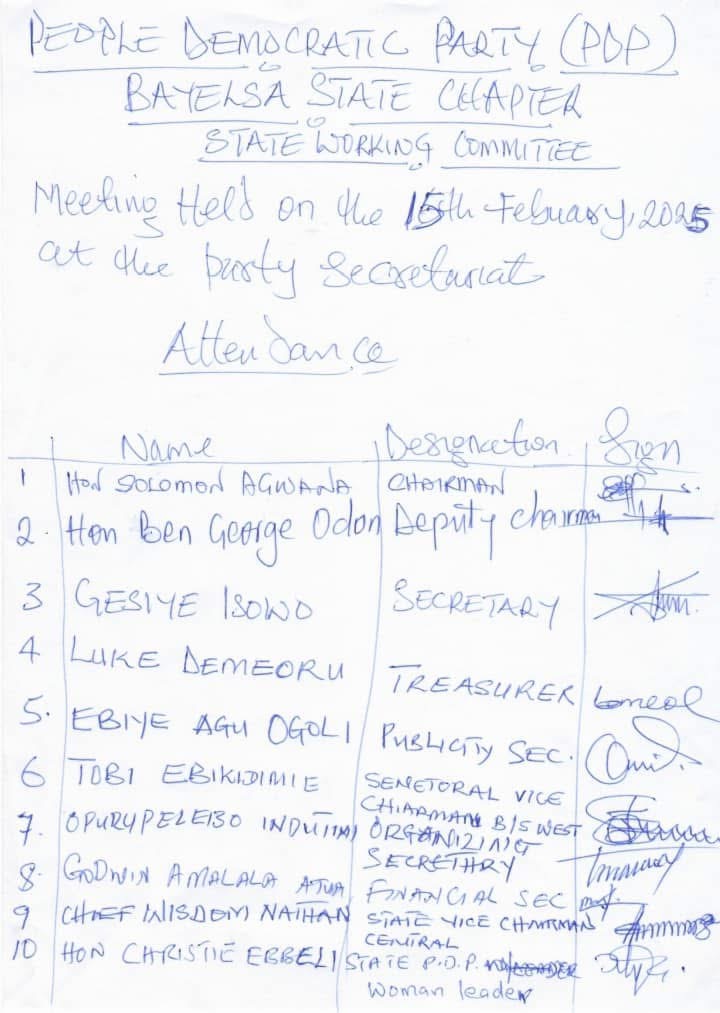 PEOPLE DEMOCRATIC PARTY (PDP)
BAYELSA STATE CHAPTER
STATE WORKING COMMITTEE
Meeting Held on the 15th Febuary, 2025
at the party Secretariat
Attendance
Name Designation Sign
1 HON SOLOMON AGWANA CHAIRMAN
2. Hon Ben George Odon Deputy Chairman
3 GESIYE ISOWO SECRETARY
4 LUKE DEMEORU TREASURER
5. EBIYE AGU OGOLI PUBLICITY SEC.
6 TOBI EBIKIDIMIE SENETORAL VICE
CHIARMAN B/S WEST
7. OPURUPELEIBO ORGANIZING
SECRETARY
8. GODWIN AMALALA ATUA FINANCIAL SEC
9 CHIEF WISDOM NATHAN STATE VICE CHAIRMAN
CENTRAL
10 HON CHRISTIE EBBELI STATE P.D.P.
Woman leader